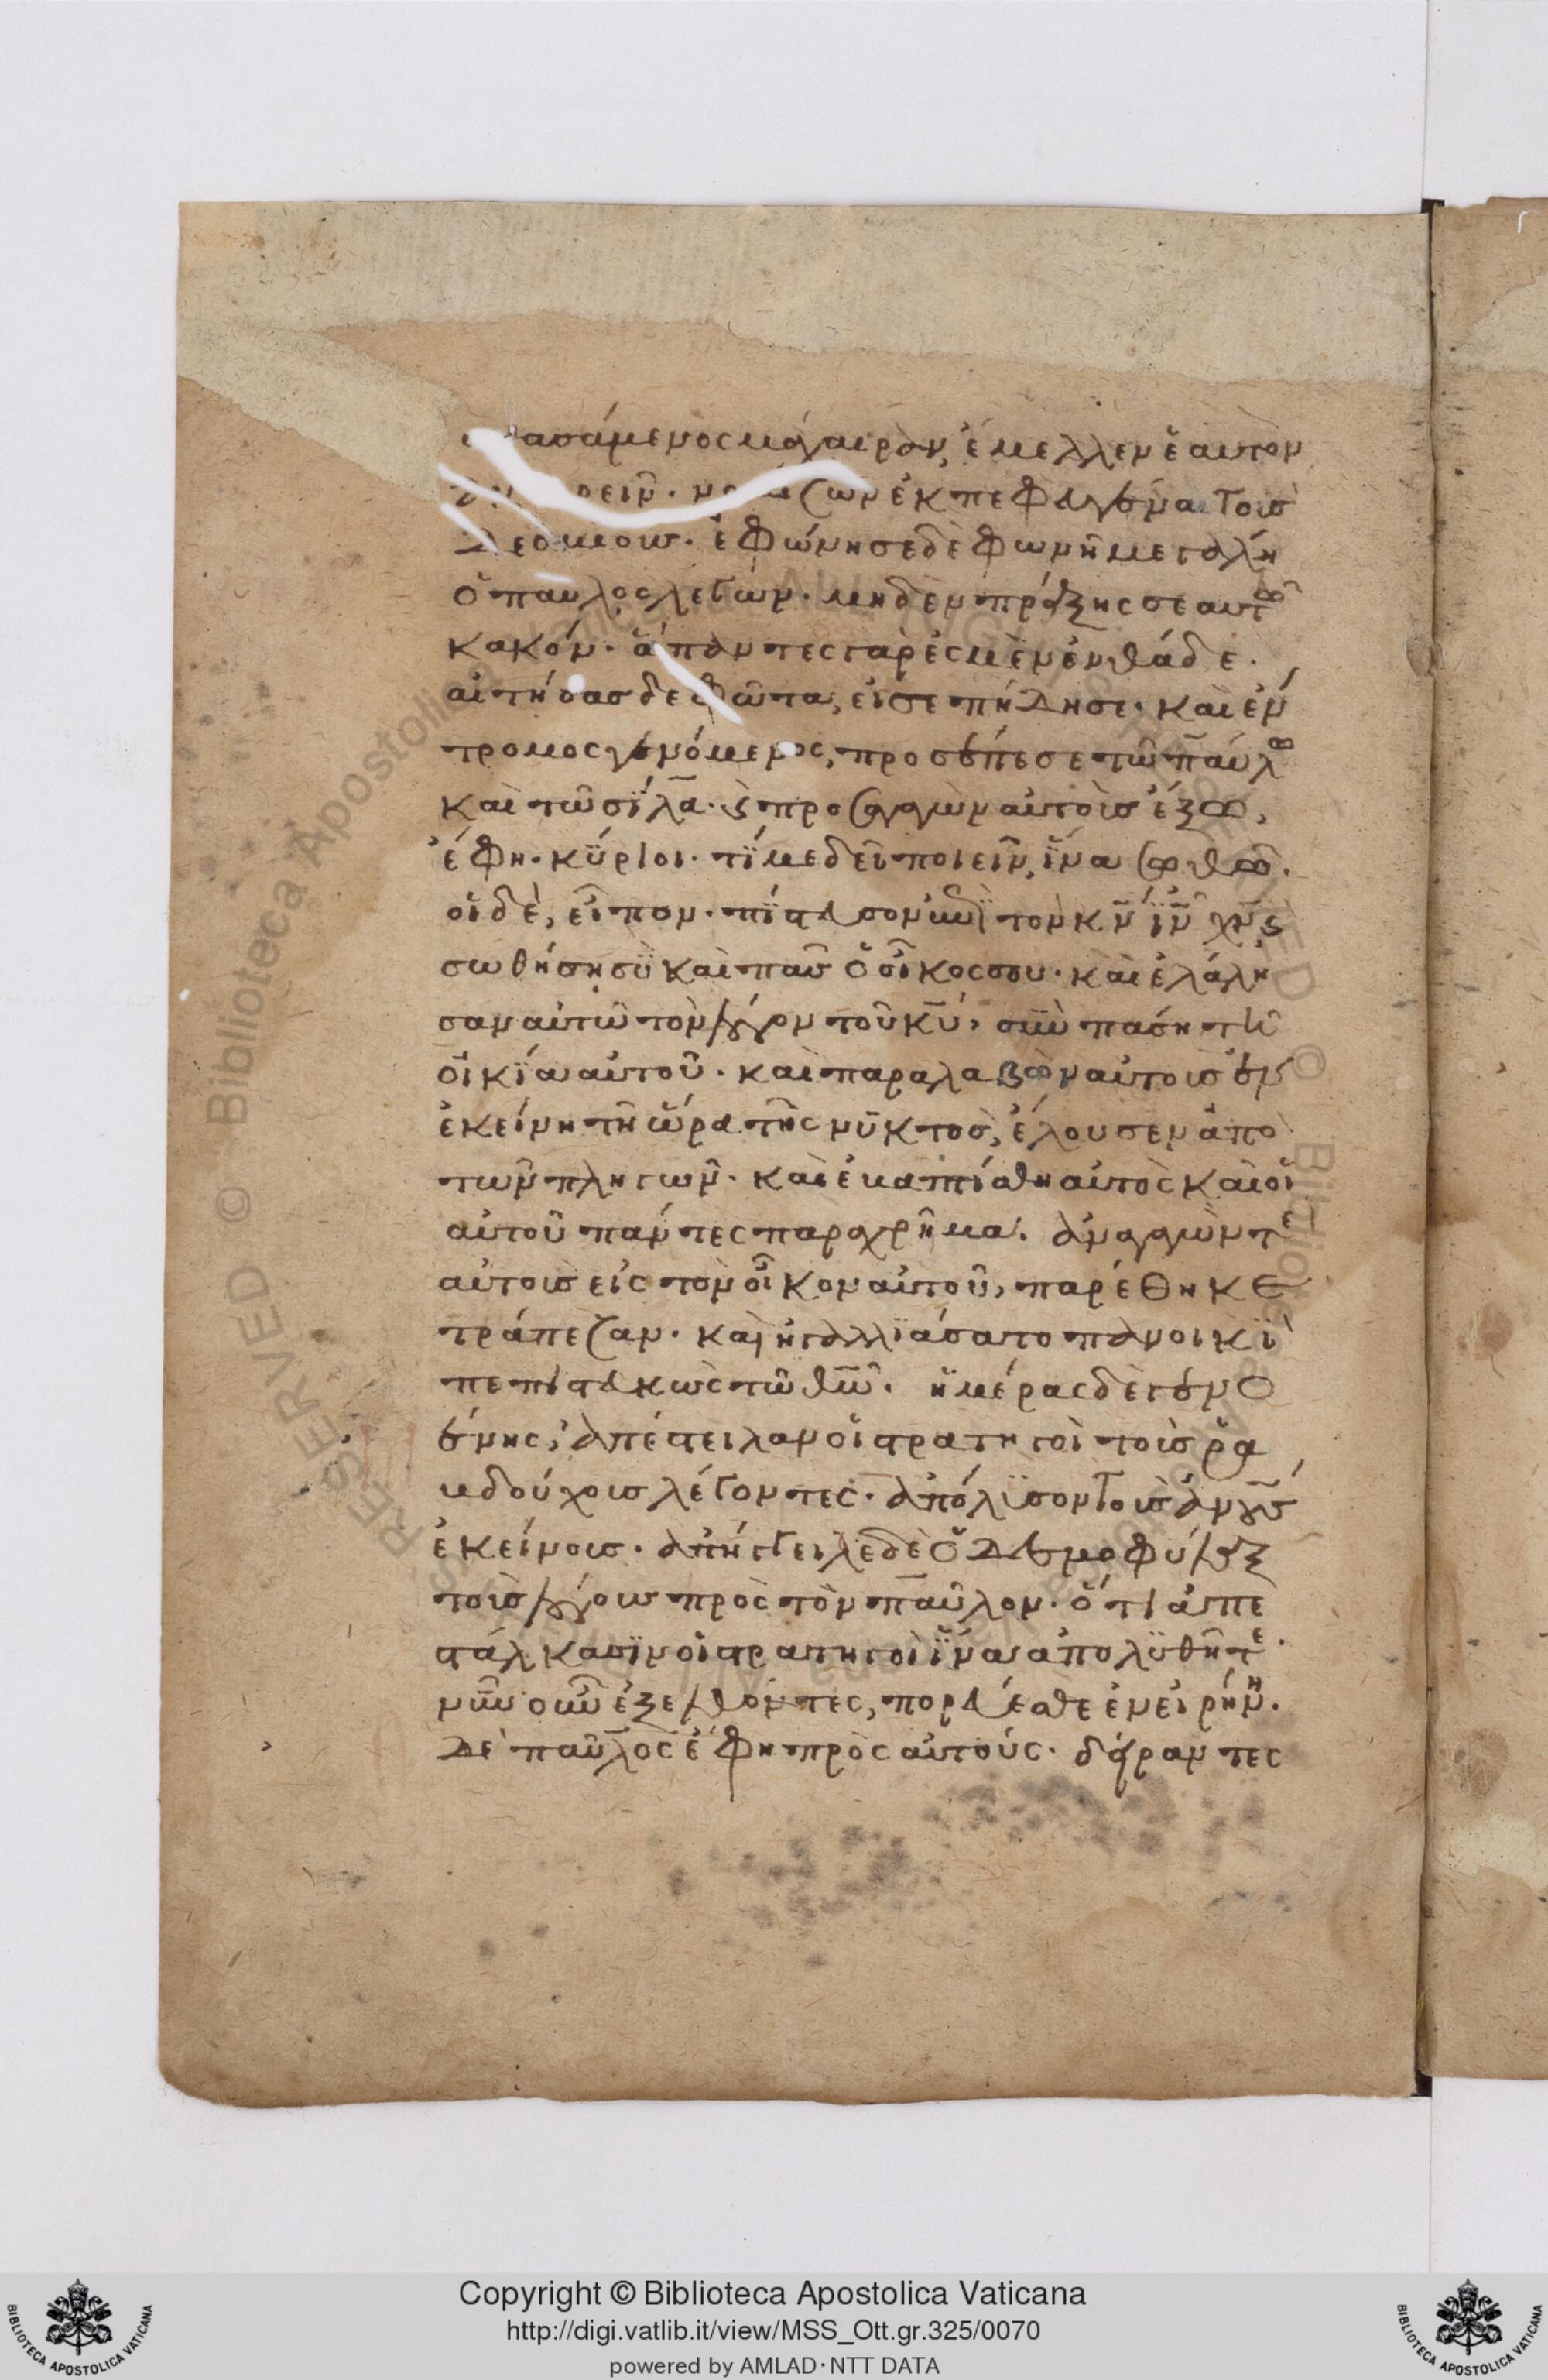 σπασάμενος μάχαιραν, ἔμελλεν ἑαυτὸν
ἀναιρεῖν. νομίζων ἐκπεφευγέναι τοὺς
δεσμίους. ἐφώνησε δὲ φωνῆ μεγάλη
ὁ παῦλος λέγων. μηδὲν πράξης σεαυτῶ
κακόν. ἅπαντες γὰρ ἐσμὲν ἐνθάδε.
αἰτήσας δὲ φῶτα, εἰσεπήδησε. καὶ ἔν
τρομος γενόμενος, προσέπεσε τῶ παύλω
καὶ τῶ σίλα. ϗ προαγαγὼν αὐτοὺς ἔξω,
ἔφη. κύριοι. τί με δεῖ ποιεῖν, ἵνα σωθῶ.
οἱ δὲ, εἶπον. πίστευσον ἐπὶ τὸν κν ιν χν ϗ
σωθήση σὺ καὶ πᾶς ὁ οἶκος σου. καὶ ἐλάλη
σαν αὐτῶ τὸν λόγον τοῦ κυ, σὺν πάση τῆ
οἰκία αὐτοῦ. καὶ παραλαβὼν αὐτοὺς ἐν
ἐκείνη τῆ ὥρα τῆς νυκτὸς, ἔλουσεν ἀπὸ
τῶν πληγῶν. καὶ ἐβαπτίσθη αὐτὸς καὶ οἱ
αὐτοῦ πάντες παραχρῆμα. ἀναγαγὼν τε
αὐτοὺς εἰς τὸν οἶκον αὐτοῦ, παρέθηκε
τράπεζαν. καὶ ἠγαλλιάσατο πανοικὶ
πεπιστευκὼς τῶ θω. ἡμέρας δὲ γενο
ένης, ἀπέστειλαν οἱ στρατηγοὶ τοὺς ῥα
βδούχους λέγοντες. ἀπόλυσον τοὺς ἀνους
ἐκείνους. ἀπήγγειλε δὲ ὁ δεσμοφύλαξ
τοὺς λόγους πρὸς τὸν παῦλον. ὅτι ἀπε
στάλκασιν οἱ στρατηγοὶ ἵνα ἀπολυθῆτε.
νῦν οὖν ἐξελθόντες, πορεύεσθε ἐν εἰρήνη.
δὲ παῦλος ἔφη πρὸς αὐτούς. δείραντες
Copyright © Biblioteca Apostolica Vaticana
http://digi.vatlib.it/view/MSS_Ott.gr.325/0070
powered by AMLAD·NTT DATA